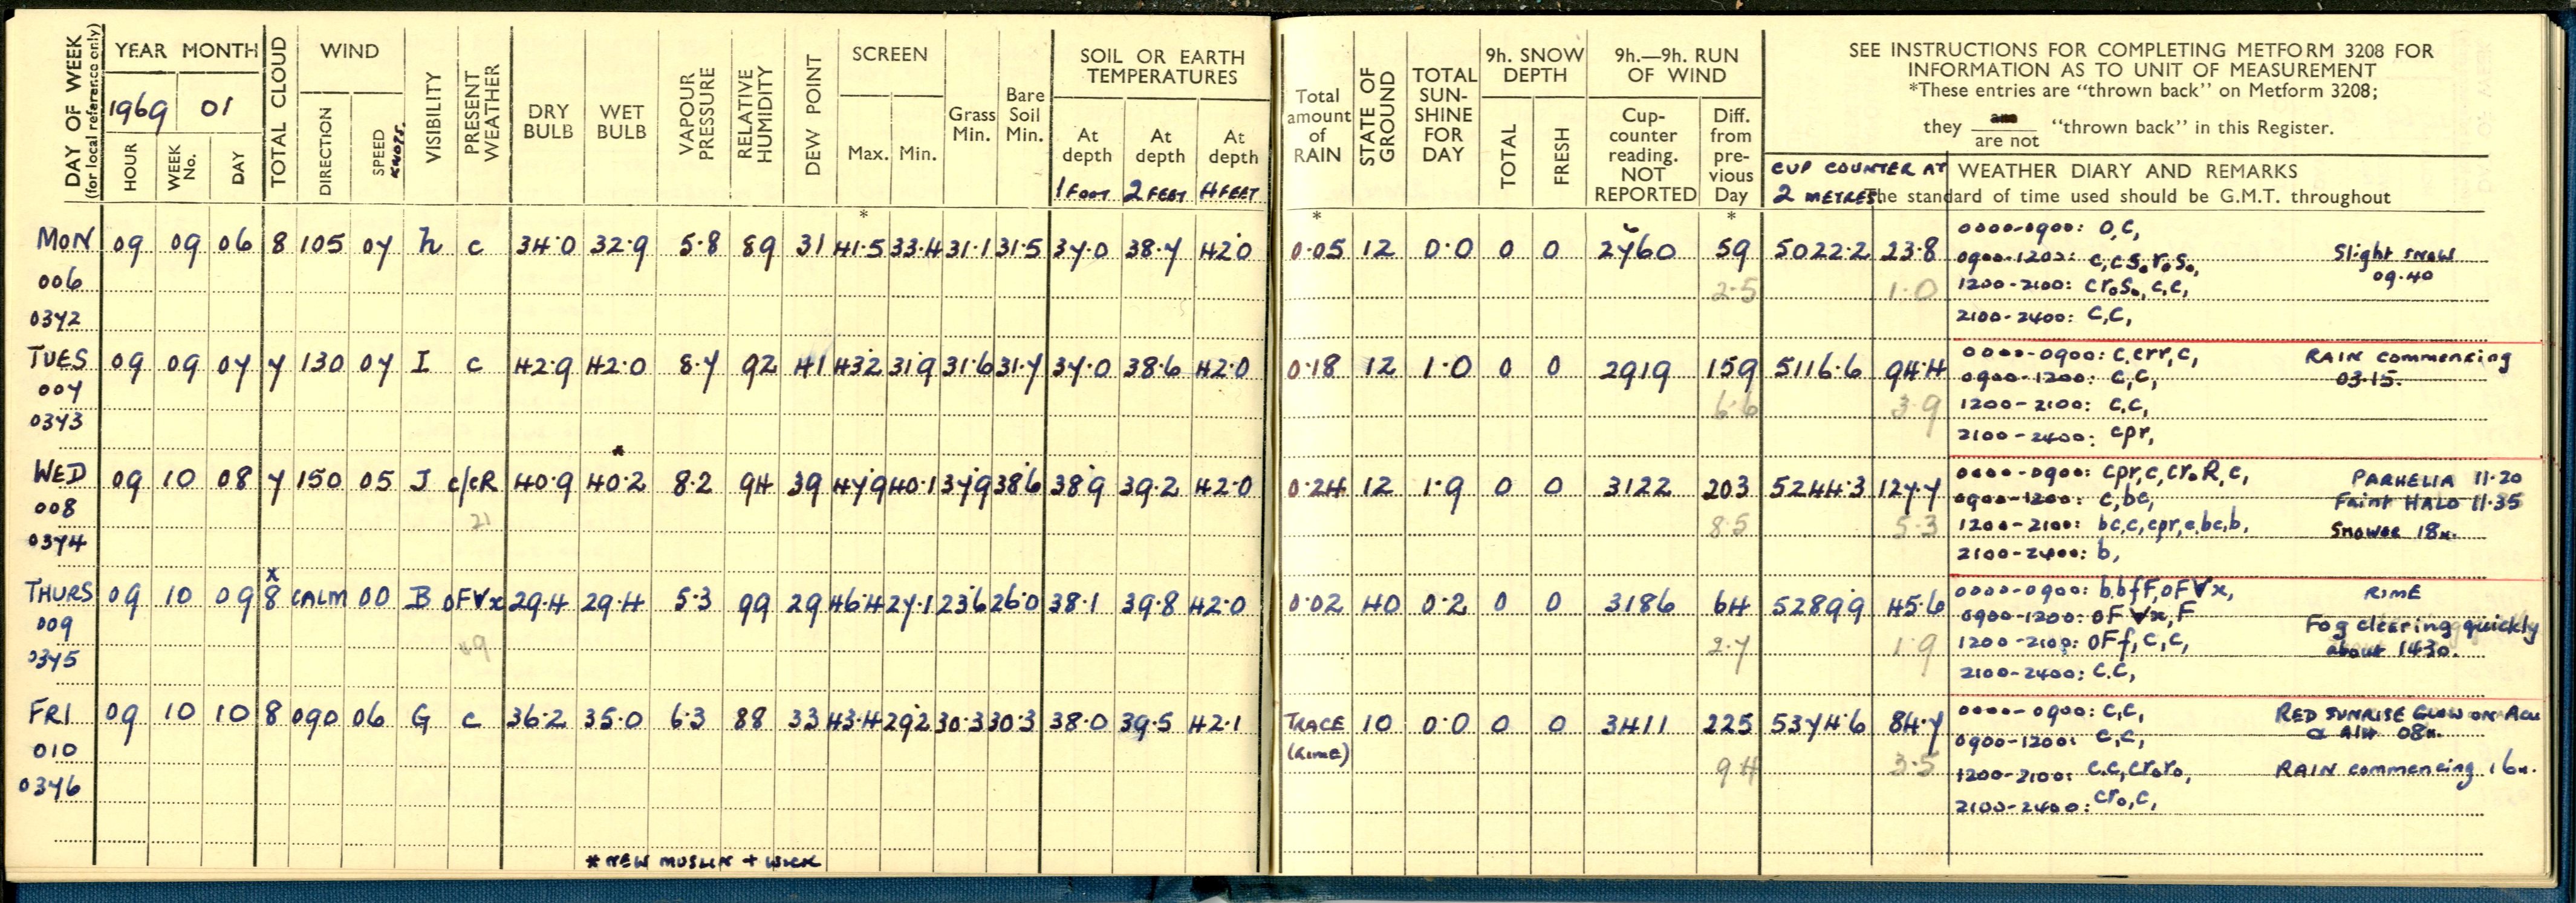 DAY OF WEEK (for local reference only)
YEAR MONTH
1969 01
HOUR WEEK No. DAY
TOTAL CLOUD
WIND
DIRECTION SPEED KNOTS.
VISIBILITY
PRESENT WEATHER
DRY BULB
WET BULB
VAPOUR PRESSURE
RELATIVE HUMIDITY
DEW POINT
SCREEN
Max. Min.
Grass Min.
Bare Soil Min.
SOIL OR EARTH TEMPERATURES
At depth 1 FOOT At depth 2 FEET At depth 4 FEET
Total amount of RAIN
STATE OF GROUND
TOTAL SUN- SHINE FOR DAY
9h. SNOW DEPTH
TOTAL FRESH
9h.—9h. RUN OF WIND
Cup- counter reading. NOT REPORTED
Diff. from pre- vious Day
SEE INSTRUCTIONS FOR COMPLETING METFORM 3208 FOR
INFORMATION AS TO UNIT OF MEASUREMENT
*These entries are "thrown back" on Metform 3208;
they are are not "thrown back" in this Register.
CUP COUNTER AT 2 METRES
WEATHER DIARY AND REMARKS
The standard of time used should be G.M.T. throughout
* * *
MON 09 09 06 8 105 07 h c 34.0 32.9 5.8 89 31 41.5 33.4 31.1 31.5 37.0 38.7 42.0 0.05 12 0.0 0 0 2760 59 5022.2 23.8 0000-0900: O,C,
006 0900-1200: c,cs₀r₀s₀, Slight snow 09.40
2.5 1.0 1200-2100: cr₀s₀,c,c,
0372 2100-2400: C,C,
TUES 09 09 07 7 130 07 I c 42.9 42.0 8.7 92 41 43.2 31.9 31.6 31.7 37.0 38.6 42.0 0.18 12 1.0 0 0 2919 159 5116.6 94.4 0000-0900: c,crr,c, RAIN commencing
007 0900-1200: C,C, 03.15.
6.6 3.9 1200-2100: C,C,
0373 2100-2400: cpr,
WED 09 10 08 7 150 05 J c/cR 40.9 40.2 8.2 94 39 47.9 40.1 37.9 38.6 38.9 39.2 42.0 0.24 12 1.9 0 0 3122 203 5244.3 127.7 0000-0900: cpr,c,cr₀R,c, PARHELIA 11.20
008 0900-1200: c,bc, Faint HALO 11.35
21 8.5 5.3 1200-2100: bc,c,cpr,c,bc,b, SHOWER 18h.
0374 2100-2400: b,
x
THURS 09 10 09 8 CALM 00 B OF∀x 29.4 29.4 5.3 99 29 46.4 27.1 23.6 26.0 38.1 39.8 42.0 0.02 40 0.2 0 0 3186 64 5289.9 45.6 0000-0900: b,bfF,OF∀x, RIME
009 0900-1200: OF∀x,F Fog clearing quickly
49 2.7 1.9 1200-2100: OFf,C,C, about 1430.
0375 2100-2400: C.C,
FRI 09 10 10 8 090 06 G c 36.2 35.0 6.3 88 33 43.4 29.2 30.3 30.3 38.0 39.5 42.1 TRACE 10 0.0 0 0 3411 225 5374.6 84.7 0000-0900: C,C, RED SUNRISE GLOW ON Acu
010 (RIME) 0900-1200: C,C, 08h.
9.4 3.5 1200-2100: C.C,cr₀r₀, RAIN commencing 16h.
0376 2100-2400: cr₀,C,
* NEW MUSLIN + WICK